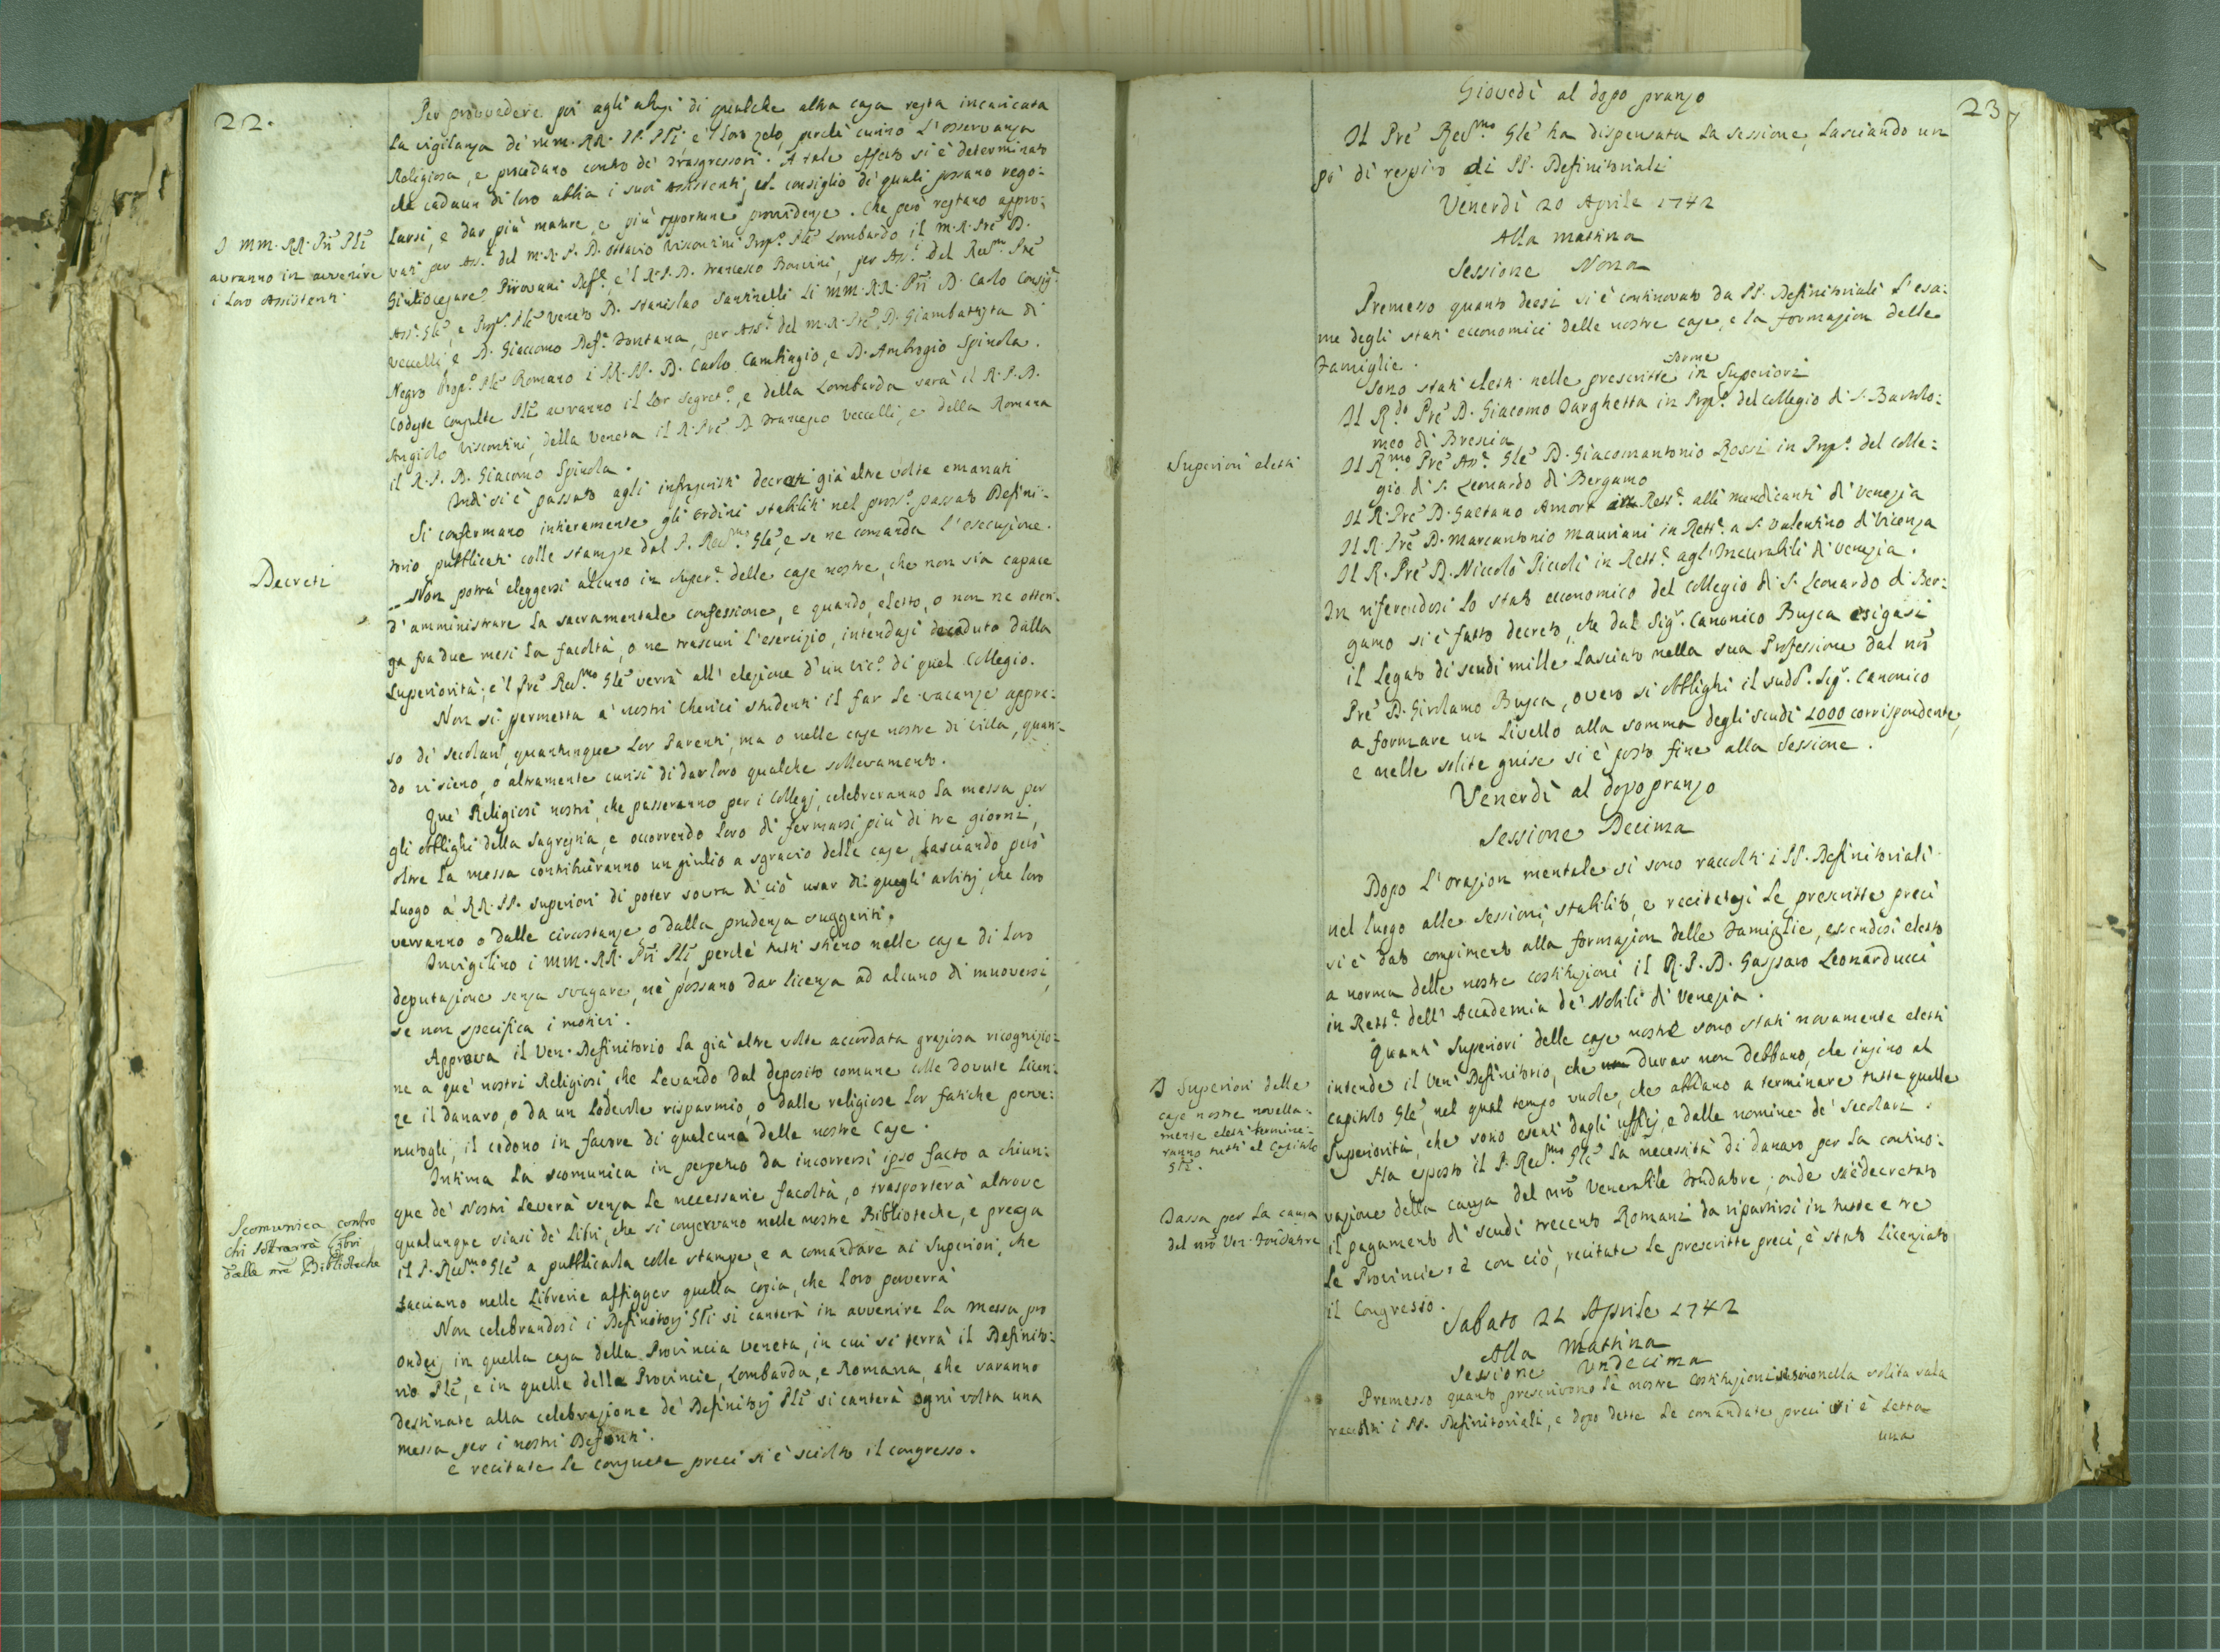 22.
Per provvedere poi agli abusi di qualche altra casa resta incaricata
la vigilanza de' mm. RR. PP. Pli, e 'l loro zelo, perchè curino l'osservanza
Religiosa, e procedano contro de' trasgressori. A tale effetto si è determinato
che cadaun di loro abbia i suoi Assistenti, col consiglio de' quali possano rego-
larsi, e dar più mature, e più opportune providenze. Che però restano appro-
I MM. RR. Pri Pli
avranno in avvenire
i loro Assistenti
vati per Ass.ti del M. R. P. D. Ottavio Viscontini Prep.o Ple Lombardo il M. R. Pre D.
Giuliocesare Pirovani Def.e e 'l R. P. D. Francesco Bonvini, per Ass.ti del Rev.mo Pre
Ass.e Gle, e Prep.o Ple Veneto D. Stanislao Santinelli li MM. RR. Pri D. Carlo Consig.
Vecelli, e D. Giacomo Def.e Fontana, per Ass.ti del M. R. Pre D. Giambattista di
Negro Prep.o Ple Romano i RR. PP. D. Carlo Cambiagio, e D. Ambrogio Spinola.
Codeste Consulte Pli avranno il lor Segret.o, e della Lombarda sarà il R. P. D.
Angiolo Viscontini, della Veneta il R. Pre D. Francesco Vecelli, e della Romana
il R. P. D. Giacomo Spinola.
Indi si è passato agli infrascritti decreti già altre volte emanati
Si confermano intieramente gli ordini stabiliti nel pross.o passato Defini-
torio pubblicati colle stampe dal P. Rev.mo Gle, e se ne comanda l'esecuzione.
Decreti
Non potrà eleggersi alcuno in super.e delle case nostre, che non sia capace
d'amministrare la sacramentale confessione, e quando, eletto, o non ne otten-
ga fra due mesi la facoltà, o ne trascuri l'esercizio, intendasi decaduto dalla
superiorità; e 'l Pre Rev.mo Gle verrà all'elezione d'un vic.o di quel Collegio.
Non si permetta a' nostri Cherici studenti il far le vacanze appre-
so di secolari, quantunque lor Parenti, ma o nelle case nostre di Villa, quan-
do vi sieno, o altramente curisi di dar loro qualche sollevamento.
Que' Religiosi nostri, che passeranno per i Collegj, celebreranno la messa per
gli obblighi della Sagrestia, e occorrendo loro di fermarsi più di tre giorni,
oltre la messa contribuiranno un giulio a sgravio delle case, lasciando però
luogo a' RR. PP. Superiori di poter sovra di ciò usar di quegli arbitrj, che loro
verranno o dalle circostanze o dalla prudenza suggeriti.
Invigilino i MM. RR. Pri Pli, perchè tutti stieno nelle case di loro
deputazione senza svagare, nè possano dar licenza ad alcuno di muoversi,
se non specifica i motivi.
Approva il Ven. Definitorio la già altre volte accordata graziosa ricognizio-
ne a que' nostri Religiosi, che levando dal deposito comune colle dovute licen-
ze il danaro, o da un lodevole risparmio, o dalle religiose lor fatiche perve-
nutogli, il cedono in favore di qualcuna delle nostre Case.
Intima la scomunica in perpetuo da incorrersi ipso facto a chiun-
que de' Nostri leverà senza le necessarie facoltà, o trasporterà altrove
Scomunica contro
chi sottrarrà libri
dalle nre Biblioteche
qualunque siasi de' Libri, che si conservano nelle nostre Biblioteche, e prega
il P. Rev.mo Gle a pubblicarla colle stampe, e a comandare ai Superiori, che
facciano nelle Librerie affigger quella copia, che loro perverrà
Non celebrandosi i Definitorj Gli si canterà in avvenire la Messa pro
Ondei in quella casa della Provincia Veneta, in cui si terrà il Definito-
rio Ple, e in quelle delle Provincie, Lombarda, e Romana, che saranno
destinate alla celebrazione de' Definitorj Pli si canterà ogni volta una
messa per i nostri Defonti.
E recitate le consuete preci si è sciolto il congresso.
23
Giovedì al dopo pranzo
Il Pre Rev.mo Gle ha dispensata la sessione, lasciando un
pò di respiro di PP. Definitoriali
Venerdì 20 Aprile 1742
Alla mattina
Sessione Nona
Premesso quanto deesi si è continovato da PP. Definitoriali l'esa-
me degli stati economici delle nostre case, e la formazion delle
Famiglie.
Sono stati eletti nelle prescritte forme in Superiori
Il R.do Pre D. Giacomo Targhetta in Prep.o del Collegio di S. Bartolo-
meo di Brescia
Superiori eletti
Il R.mo Pre Ass.e Gle D. Giacomantonio Rossi in Prep.o del Colle-
gio di S. Leonardo di Bergamo
Il R. Pre D. Gaetano Amort in Rett.e alli mendicanti di Venezia
Il R. Pre D. Marcantonio Mauriani in Rett.e a S. Valentino di Vicenza
Il R. Pre D. Niccolò Piccoli in Rett.e agl'Incurabili di Venezia.
In riferendosi lo stato economico del Collegio di S. Leonardo di Ber-
gamo si è fatto decreto, che dal Sig.r Canonico Busca esigasi
il legato di scudi mille lasciato nella sua Professione dal nro
Pre D. Girolamo Busca, overo si obblighi il sudd.o Sig.r Canonico
a formare un Livello alla somma degli scudi 1000 corrispondente,
e nelle solite guise si è posto fine alla Sessione.
Venerdì al dopo pranzo
Sessione Decima
Dopo l'orazion mentale si sono raccolti i PP. Definitoriali
nel luogo alle sessioni stabilito, e recitatesi le prescritte preci
si è dato compimento alla formazion delle Famiglie, essendosi eletto
a norma delle nostre costituzioni il R. P. D. Gasparo Leonarducci
in Rett.e dell'Accademia de' Nobili di Venezia.
Quanti Superiori delle case nostre sono stati novamente eletti
I Superiori delle
case nostre novella-
mente eletti termine-
ranno tutti al Capitolo
Gle.
intende il Ven. Definitorio, che durar non debbano, che insino al
capitolo Gle, nel qual tempo vuole, che abbiano a terminare tutte quelle
Superiorità, che sono esenti dagli ufflj, e dalle nomine de' secolari.
Ha esposto il P. Rev.mo Gle la necessità di danaro per la contino-
Tassa per la causa
del nro Ven. Fondatore
vazione della causa del nro Venerabile Fondatore; onde si è decretato
il pagamento di scudi trecento Romani da ripartirsi in tutte e tre
le Provincie: e con ciò, recitate le prescritte preci, è stato licenziato
il Congresso.
Sabato 21 Aprile 1742
Alla Mattina
Sessione Undecima
Premesso quanto prescrivono le nostre Costituzioni si sono nella solita sala
raccolti i PP. Definitoriali, e dopo dette le comandate preci si è letta
una